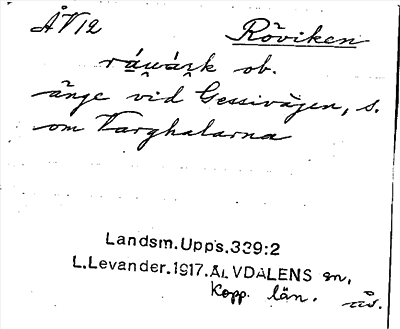 ÅV12 Röviken
ob.
änge vid Gessivägen, s.
om Varghalarna
Landsm.Upps.339:2
L.Levander.1917.ÄLVDALENS sn,
Kopp. län. äs.